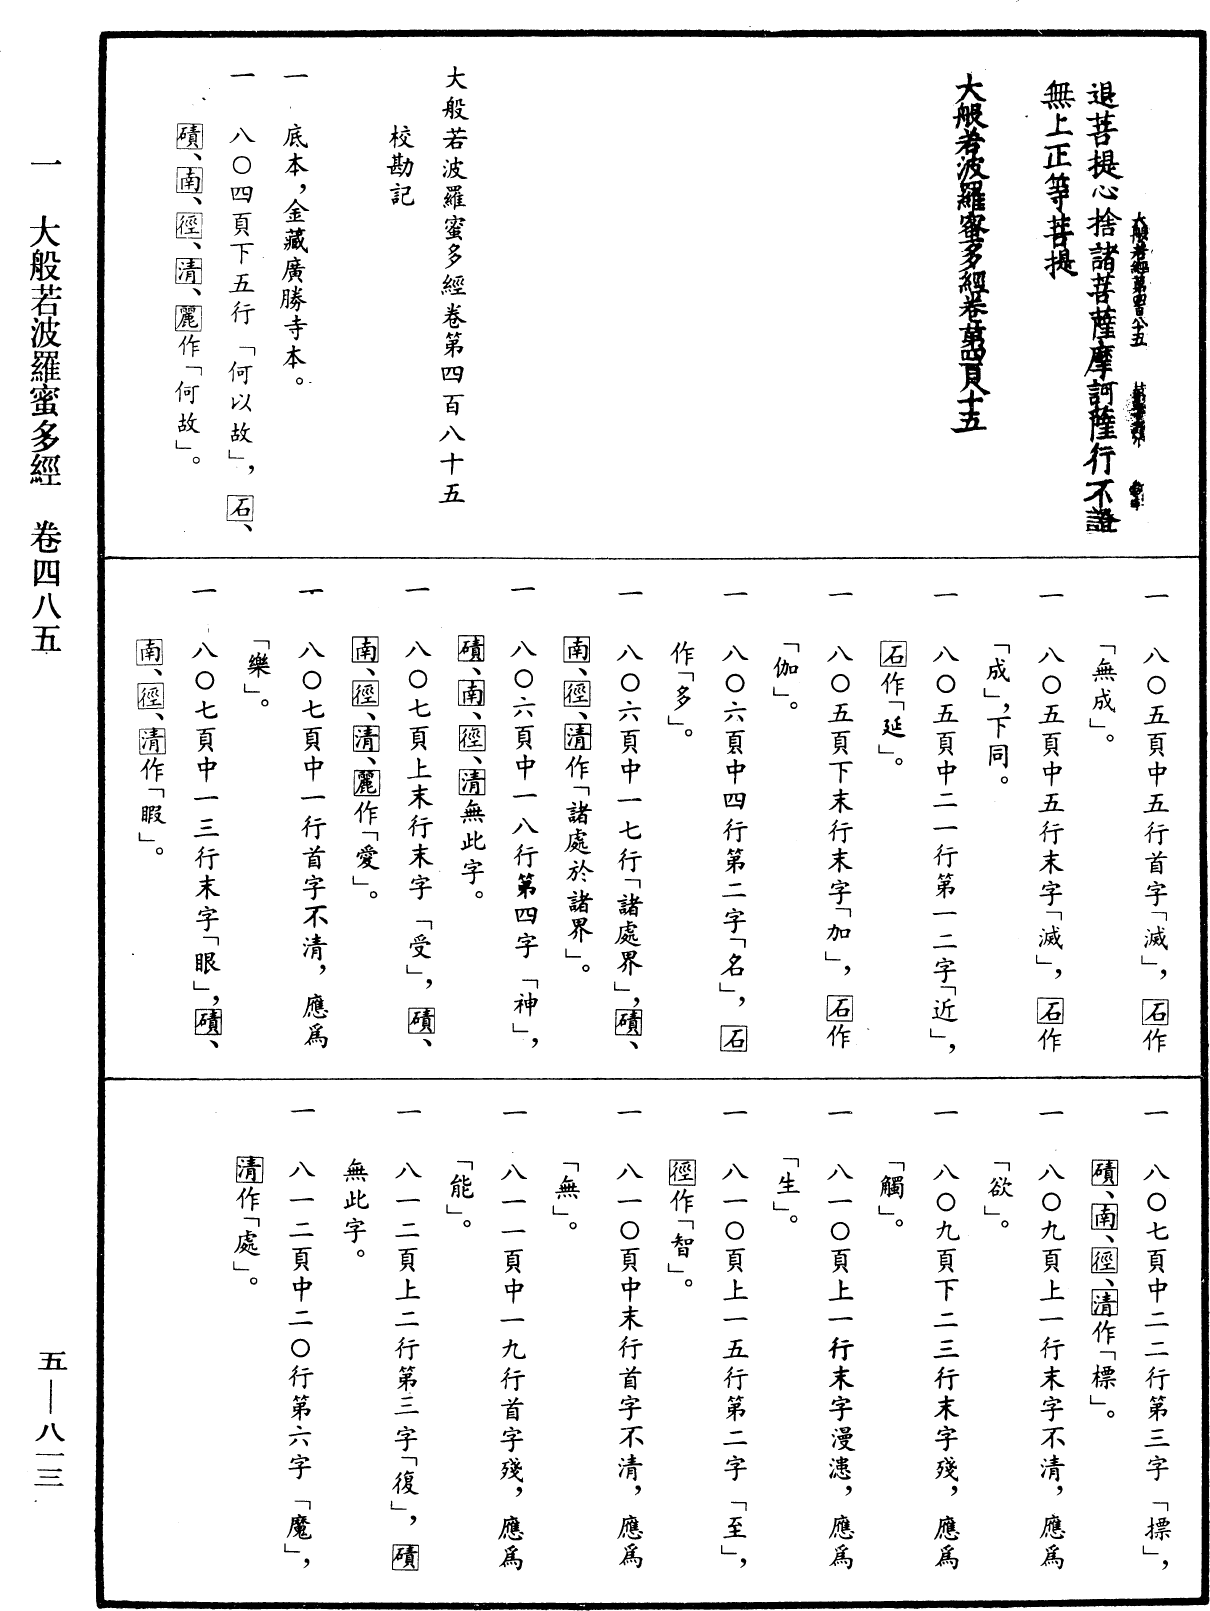 大般若經第四百八十五
退菩提心捨諸菩薩摩訶薩行不證
無上正等菩提
大般若波羅蜜多經卷第四百八十五
大般若波羅蜜多經卷第四百八十五
校勘記
一　底本，金藏廣勝寺本。
一　八〇四頁下五行「何以故」，石、
磧、南、徑、清、麗作「何故」。
一　八〇五頁中五行首字「滅」，石作
「無成」。
一　八〇五頁中五行末字「滅」，石作
「成」，下同。
一　八〇五頁中二一行第一二字「近」，
石作「延」。
一　八〇五頁下末行末字「加」，石作
「伽」。
一　八〇六頁中四行第二字「名」，石
作「多」。
一　八〇六頁中一七行「諸處界」，磧、
南、徑、清作「諸處於諸界」。
一　八〇六頁中一八行第四字「神」，
磧、南、徑、清無此字。
一　八〇七頁上末行末字「受」，磧、
南、徑、清、麗作「愛」。
一　八〇七頁中一行首字不清，應爲
「樂」。
一　八〇七頁中一三行末字「眼」，磧、
南、徑、清作「暇」。
一　八〇七頁中二二行第三字「摽」，
磧、南、徑、清作「標」。
一　八〇九頁上一行末字不清，應爲
「欲」。
一　八〇九頁下二三行末字殘，應爲
「觸」。
一　八一〇頁上一行末字漫漶，應爲
「生」。
一　八一〇頁上一五行第二字「至」，
徑作「智」。
一　八一〇頁中末行首字不清，應爲
「無」。
一　八一一頁中一九行首字殘，應爲
「能」。
一　八一二頁上二行第三字「復」，磧
無此字。
一　八一二頁中二〇行第六字「魔」，
清作「處」。
一　大般若波羅蜜多經　卷四八五
五—八一三